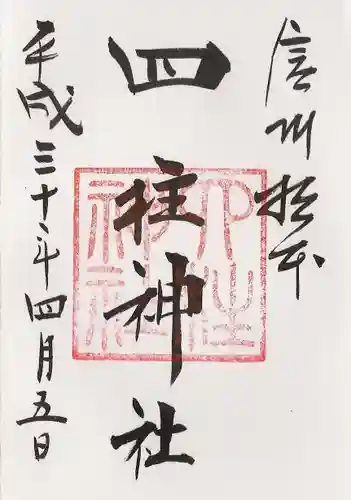 信州松本
四柱神社
平成三十年四月五日
四柱神社